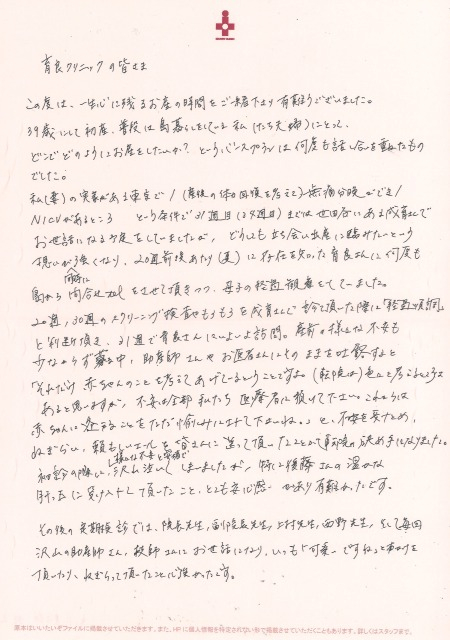 育良クリニックの皆さま
この度は、一生心に残るお産の時間をご一緒下さり有難うございました。
39歳にして初産、普段は島暮らしをしている私たち夫婦にとって、
どこでどのようにお産をしたいか？というバースプランは何度も話し合を重ねたもの
でした。
私(妻)の実家がある東京で/(産後の体力回復を考えて)無痛分娩ができ/
NICUがあるところ という条件で31週目(29週目)までは世田谷にある成育さんで
お世話になる予定をしていましたが、どうしても立ち会い出産に臨みたいという
想いが強くなり、20週前後あたり(夏)に存在を知った育良さんに何度も
島から問合せtelをさせて頂きつつ、母子の経過観察をしてました。
20週、30週のスクリーニング検査でもうもうを成育さんで頂いた際に「経過順調」
と判断頂き、31週で育良さんにいよいよ訪問。産前の様々な不安も
少なからず 中、助産師さんやお医者さんにそのままを吐露すると
「それだけ赤ちゃんのことを考えてあげているということですよ。(転院は)色々と考えるところは
あると思いますが、不安は全部私たち医療者に預けて下さい。これからは
赤ちゃんに逢えることをただただ愉しみにしてて下さいね。」と、不安を受けとめ、
ねぎらい、頼もしいエールを皆さんに送って頂いたことが転院の決め手となりました。
初診の際に、沢山泣いてしまいましたが、特に後藤さんの温かな
対応に受け入れて頂いたこと、とても安心感があり有難かったです。
その後の定期検診では、院長先生、副院長先生、上村先生、西野先生、そして毎回
沢山の助産師さん、教師さんにお世話になり、いつも「可愛いですね」と声かけを
頂いたり、ねぎらって頂いたことに強かったです。
原本はいたいそファイルに掲載させていただきます。また、HPに個人情報を特定されない形で掲載させていただくこともあります。詳しくはスタッフまで。